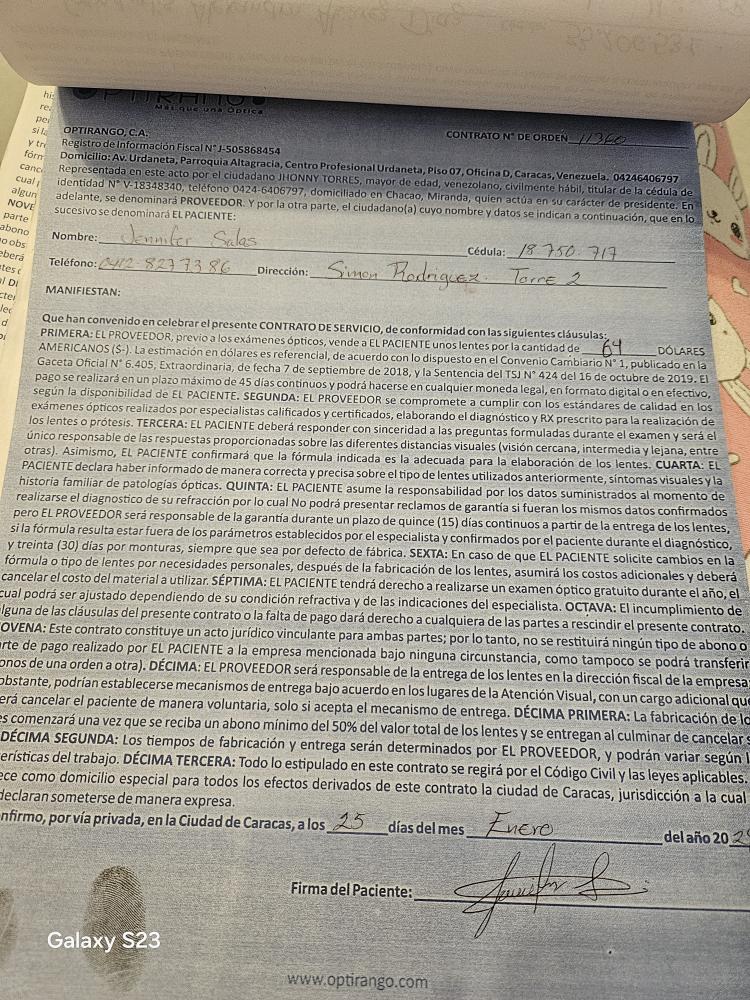 53.206.531
OPTIRANGO
Más que una Óptica
OPTIRANGO, C.A.
CONTRATO N° DE ORDEN 11360
Registro de Información Fiscal N° J-505868454
Domicilio: Av. Urdaneta, Parroquia Altagracia, Centro Profesional Urdaneta, Piso 07, Oficina D, Caracas, Venezuela. 04246406797
Representada en este acto por el ciudadano JHONNY TORRES, mayor de edad, venezolano, civilmente hábil, titular de la cédula de
identidad N° V-18348340, teléfono 0424-6406797, domiciliado en Chacao, Miranda, quien actúa en su carácter de presidente. En
adelante, se denominará PROVEEDOR. Y por la otra parte, el ciudadano(a) cuyo nombre y datos se indican a continuación, que en lo
sucesivo se denominará EL PACIENTE:
Nombre: Jennifer Salas Cédula: 18.750.717
Teléfono: 0412-8277386 Dirección: Simon Rodriguez. Torre 2
MANIFIESTAN:
Que han convenido en celebrar el presente CONTRATO DE SERVICIO, de conformidad con las siguientes cláusulas:
PRIMERA: EL PROVEEDOR, previo a los exámenes ópticos, vende a EL PACIENTE unos lentes por la cantidad de 64 DÓLARES
AMERICANOS (S-). La estimación en dólares es referencial, de acuerdo con lo dispuesto en el Convenio Cambiario N° 1, publicado en la
Gaceta Oficial N° 6.405, Extraordinaria, de fecha 7 de septiembre de 2018, y la Sentencia del TSJ N° 424 del 16 de octubre de 2019. El
pago se realizará en un plazo máximo de 45 días continuos y podrá hacerse en cualquier moneda legal, en formato digital o en efectivo,
según la disponibilidad de EL PACIENTE. SEGUNDA: EL PROVEEDOR se compromete a cumplir con los estándares de calidad en los
exámenes ópticos realizados por especialistas calificados y certificados, elaborando el diagnóstico y RX prescrito para la realización de
los lentes o prótesis. TERCERA: EL PACIENTE deberá responder con sinceridad a las preguntas formuladas durante el examen y será el
único responsable de las respuestas proporcionadas sobre las diferentes distancias visuales (visión cercana, intermedia y lejana, entre
otras). Asimismo, EL PACIENTE confirmará que la fórmula indicada es la adecuada para la elaboración de los lentes. CUARTA: EL
PACIENTE declara haber informado de manera correcta y precisa sobre el tipo de lentes utilizados anteriormente, síntomas visuales y la
historia familiar de patologías ópticas. QUINTA: EL PACIENTE asume la responsabilidad por los datos suministrados al momento de
realizarse el diagnostico de su refracción por lo cual No podrá presentar reclamos de garantía si fueran los mismos datos confirmados
pero EL PROVEEDOR será responsable de la garantía durante un plazo de quince (15) días continuos a partir de la entrega de los lentes,
si la fórmula resulta estar fuera de los parámetros establecidos por el especialista y confirmados por el paciente durante el diagnóstico,
y treinta (30) días por monturas, siempre que sea por defecto de fábrica. SEXTA: En caso de que EL PACIENTE solicite cambios en la
fórmula o tipo de lentes por necesidades personales, después de la fabricación de los lentes, asumirá los costos adicionales y deberá
cancelar el costo del material a utilizar. SÉPTIMA: EL PACIENTE tendrá derecho a realizarse un examen óptico gratuito durante el año, el
cual podrá ser ajustado dependiendo de su condición refractiva y de las indicaciones del especialista. OCTAVA: El incumplimiento de
lguna de las cláusulas del presente contrato o la falta de pago dará derecho a cualquiera de las partes a rescindir el presente contrato.
OVENA: Este contrato constituye un acto jurídico vinculante para ambas partes; por lo tanto, no se restituirá ningún tipo de abono o
rte de pago realizado por EL PACIENTE a la empresa mencionada bajo ninguna circunstancia, como tampoco se podrá transferir
onos de una orden a otra). DÉCIMA: EL PROVEEDOR será responsable de la entrega de los lentes en la dirección fiscal de la empresa;
obstante, podrían establecerse mecanismos de entrega bajo acuerdo en los lugares de la Atención Visual, con un cargo adicional que
erá cancelar el paciente de manera voluntaria, solo si acepta el mecanismo de entrega. DÉCIMA PRIMERA: La fabricación de lo
es comenzará una vez que se reciba un abono mínimo del 50% del valor total de los lentes y se entregan al culminar de cancelar s
DÉCIMA SEGUNDA: Los tiempos de fabricación y entrega serán determinados por EL PROVEEDOR, y podrán variar según l
erísticas del trabajo. DÉCIMA TERCERA: Todo lo estipulado en este contrato se regirá por el Código Civil y las leyes aplicables.
ece como domicilio especial para todos los efectos derivados de este contrato la ciudad de Caracas, jurisdicción a la cual
declaran someterse de manera expresa.
nfirmo, por vía privada, en la Ciudad de Caracas, a los 25 días del mes Enero del año 20
Firma del Paciente:
Galaxy S23
www.optirango.com